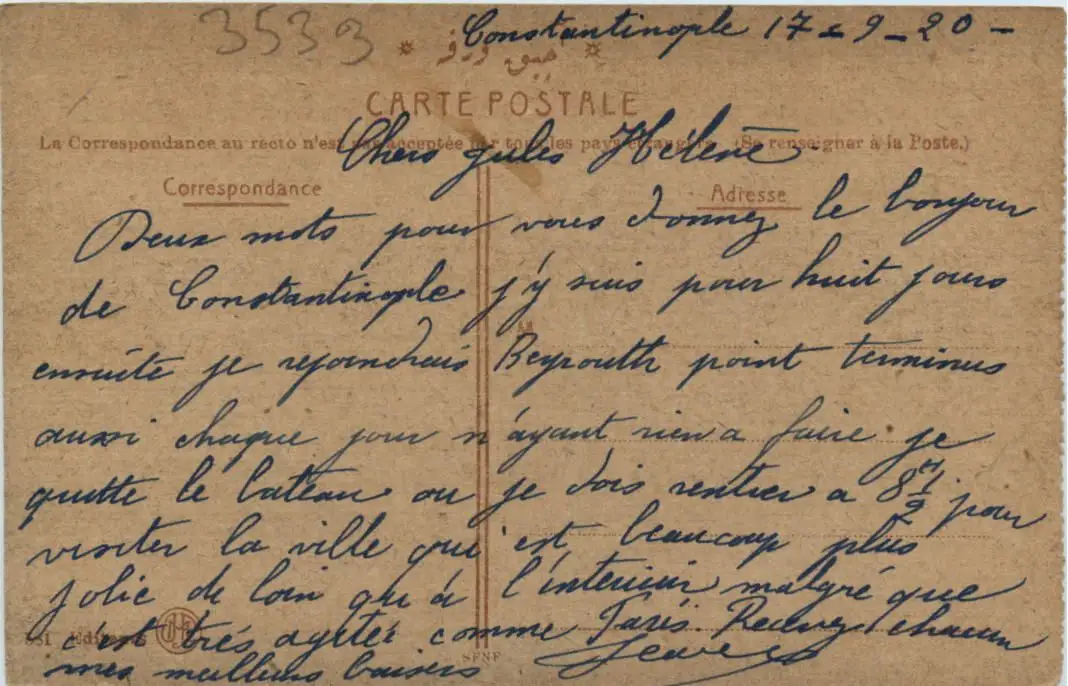 3533
Constantinople 17-9-20-
CARTE POSTALE
La Correspondance au recto n'est pas acceptée par tous les pays étrangers (Se renseigner à la Poste.)
Chers Jules Hélène
Correspondance
Adresse
Deux mots pour vous donner le bonjour
de Constantinople j'y suis pour huit jours
M
ensuite je rejoindrais Beyrouth point terminus
aussi chaque jour n'ayant rien a faire je
quitte le bateau ou je dois rentrer a 8H 1/2 pour
visiter la ville qui est beaucoup plus
jolie de loin qu'à l'interieur malgré que
c'est trés agitée comme Paris. Recevez chacun
mes meilleurs baisers